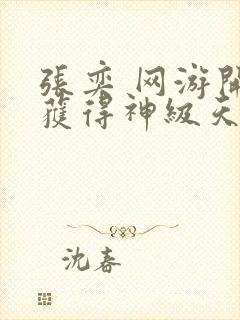 張奕 网游開
獲得神級天
沈春